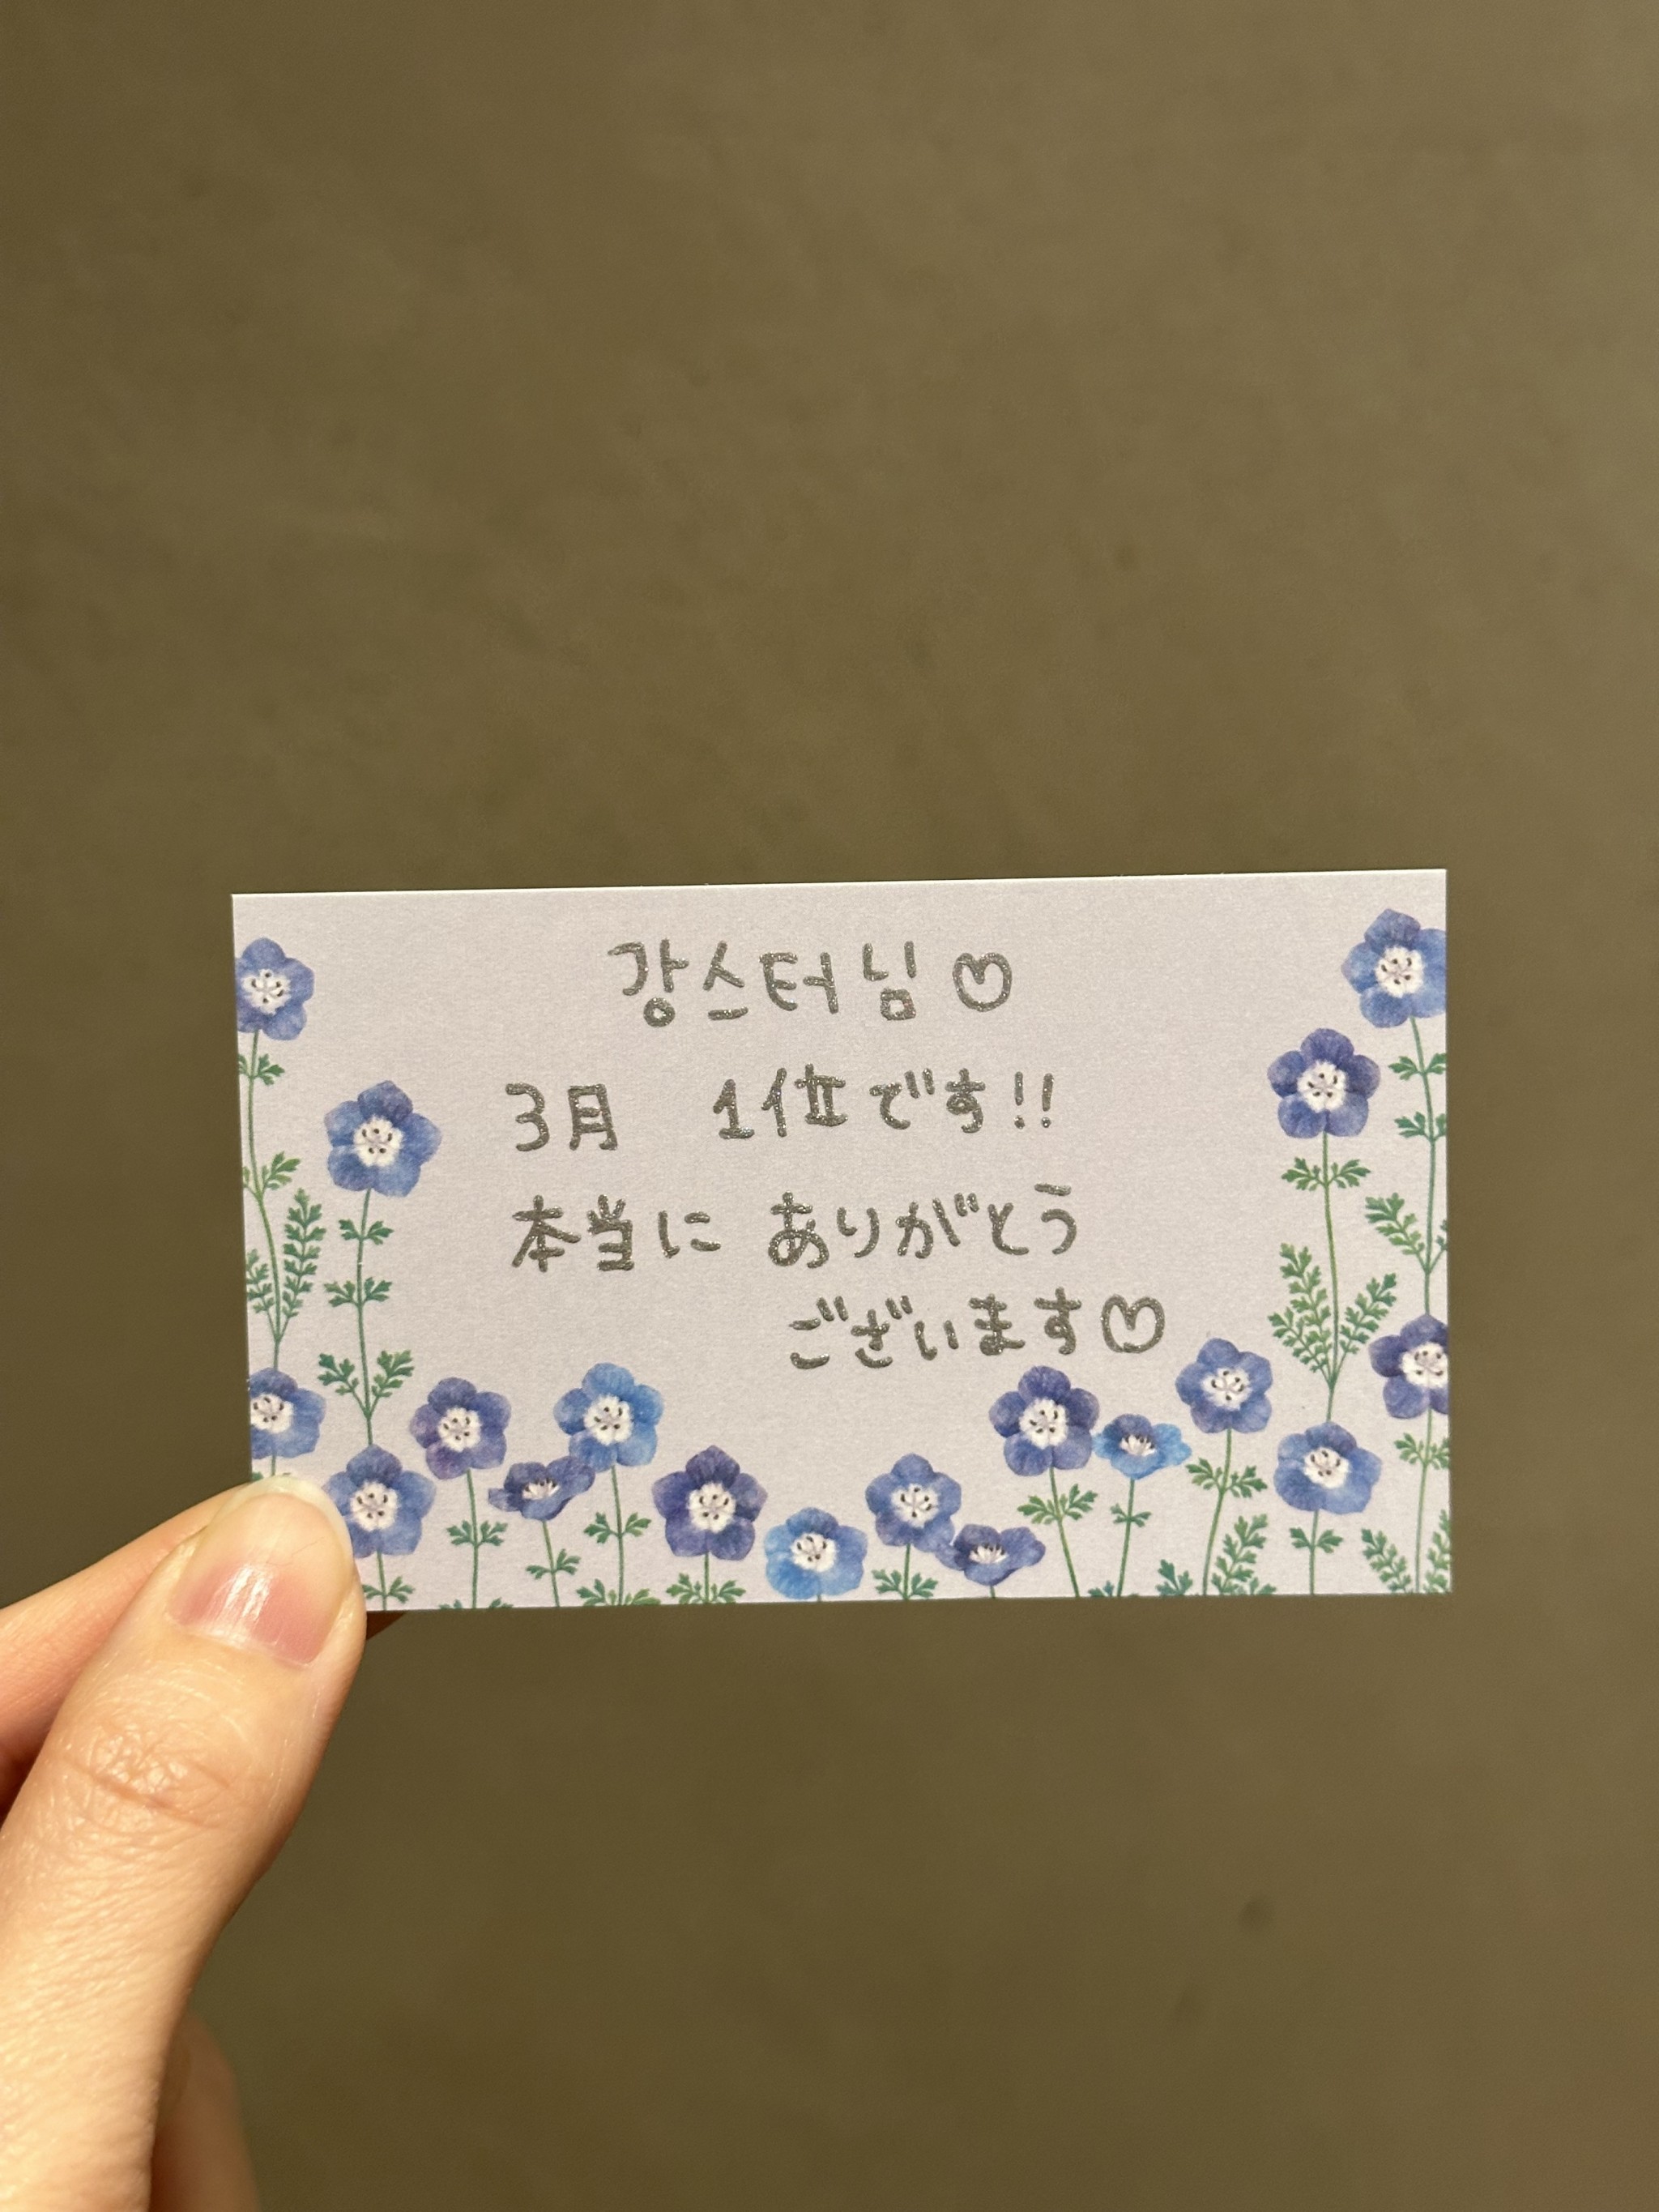 강스터님♡
3月 1位です!!
本当に ありがとう
ございます♡